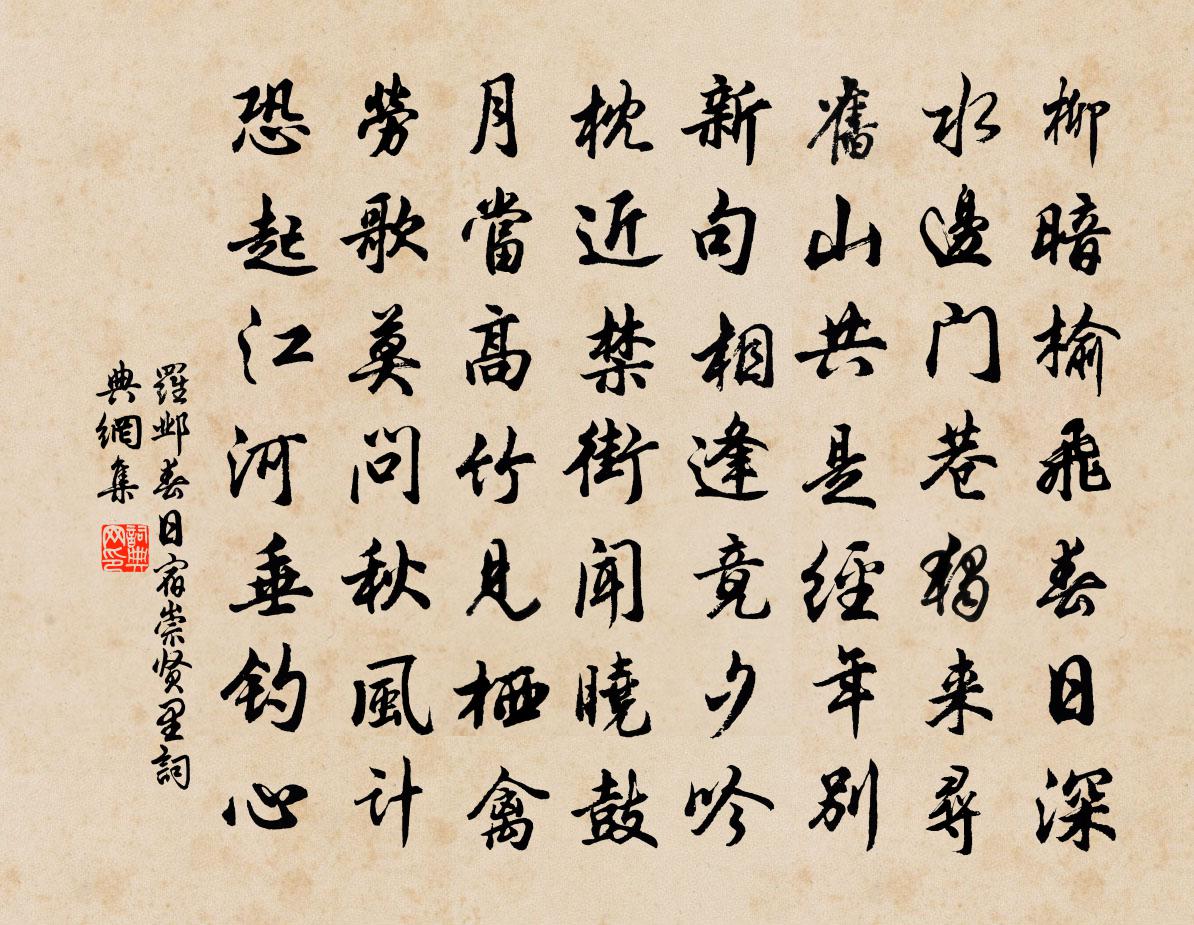 柳暗榆飛春日深
水邊門巷獨來尋
舊山共是經年別
新句相逢竟夕吟
枕近禁街聞曉鼓
月當高竹見栖禽
勞歌莫問秋風計
恐起江河垂釣心
羅鄴春日宿崇賢里詞
典網集
詞典
网印